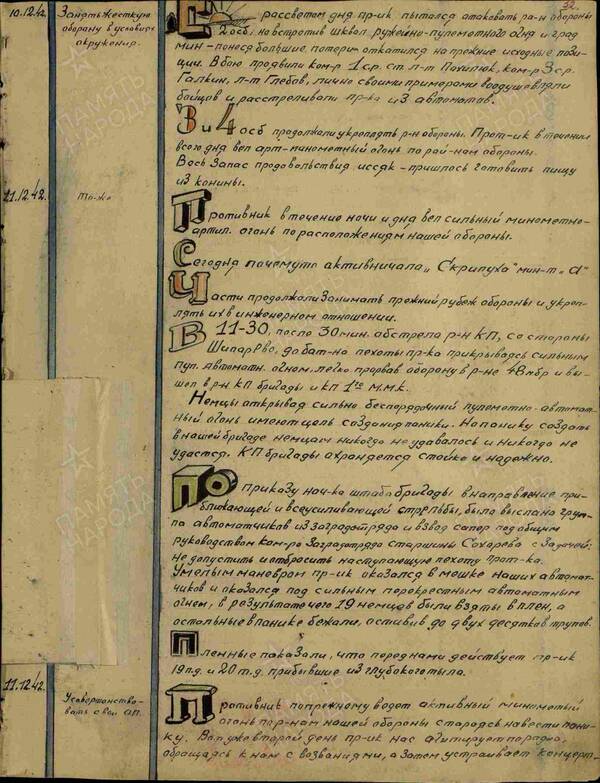 32.
10.12.42.
Занять жесткую
оборону в условиях
окружения.
С рассветом дня пр-ик пытался атаковать ра-н обороны
2 осб, но встретив шквал ружейно-пулеметного огня и град
мин - понеся большие потери откатился на прежние исходные пози-
ции. В бою проявили ком-р 1 ср. ст. л-т Похилюк, ком-р 3 ср.
Галкин, л-т Глебов, лично своими примерами воодушевляли
бойцов и расстреливали пр-ка из автоматов.
3 и 4 осб продолжали укреплять р-н обороны. Прот-ик в течении
всего дня вел арт-минометный огонь по рай-нам обороны.
Весь запас продовольствия иссяк - пришлось готовить пищу
из конины.
11.12.42.
То-же
Противник в течение ночи и дня вел сильный минометно-
артил. огонь по расположениям нашей обороны.
Сегодня почемуто активничала „Скрипуха" мин-т „d"
Части продолжали занимать прежний рубеж обороны и укреп-
лять их в инженерном отношении.
В 11-30, после 30 мин. обстрела р-н КП, со стороны
Шипарёво, до бат-на пехоты пр-ка прикрываясь сильным
пул. автоматн. огнем, легко прорвав оборону в р-не 48 тбр и вы-
шел в р-н КП бригады и КП 1го М.М.К.
Немцы открывая сильно беспорядочный пулеметно-автомат-
ный огонь имеют цель создания паники. Но панику создать
в нашей бригаде немцам никогда не удавалось и никогда не
удастся. КП бригады охраняется стойко и надежно.
По приказу нач-ка штаба бригады в направление при-
ближающей и все усиливающей стрельбы, было выслано груп-
па автоматчиков из заградотряда и взвод сапер под общим
руководством ком-ра Заградотряда старшины Сухарева с задачей:
не допустить и отбросить наступающую пехоту прот-ка.
Умелым маневром пр-ик оказался в мешке наших автомат-
чиков и оказался под сильным перекрестным автоматным
огнем, в результате чего 19 немцев были взяты в плен, а
остальные в панике бежали, оставив до двух десятков трупов.
Пленные показали, что перед нами действует пр-ик
19 п.д. и 20 т.д. прибывшие из глубокого тыла.
11.12.42.
Усовершенство-
вать свои О.П.
Противник попрежнему ведет активный минометный
огонь по р-нам нашей обороны стараясь навести пани-
ку. Вот уже второй день пр-ик нас агитирует по радио,
обращаясь к нам с воззваниями, а затем устраивает концерт-
ПАМЯТЬ
НАРОДА